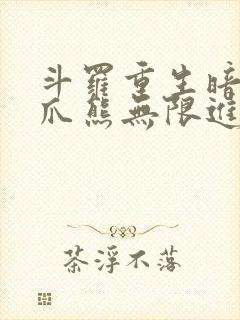 斗羅重生暗
爪熊無限進
茶浮不落